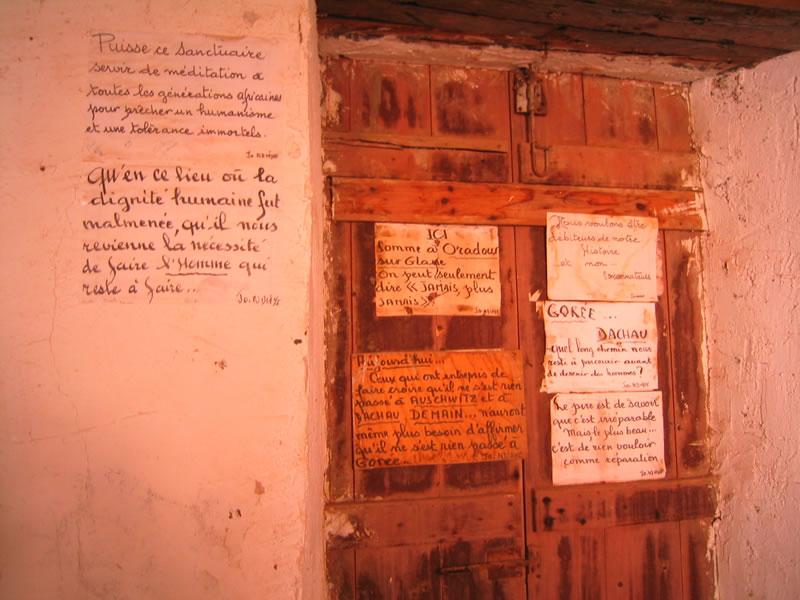 Puisse ce sanctuaire
servir de méditation à
toutes les générations africaines
pour prêcher un humanisme
et une tolérance immortels.
Jo. NDIAYE
Qu'en ce lieu où la
dignité humaine fut
malmenée, qu'il nous
revienne la nécessité
de faire l'HOMME qui
reste à faire...
Jo. NDIAYE
ICI
Comme à Oradour
sur Glane
On peut seulement
dire « JAMAIS, plus
JAMAIS »
Jo. NDIAYE
Aujourd'hui...
Ceux qui ont entrepris de
faire croire qu'il ne s'est rien
passé à AUSCHWITZ et à
DACHAU DEMAIN... n'auront
même plus besoin d'affirmer
qu'il ne s'est rien passé à
GORÉE...
Jo. NDIAYE
Nous voulons être
débiteurs de notre
Histoire
et non
GORÉE...
DACHAU
Quel long chemin nous
reste à parcourir avant
de devenir des hommes ?
Jo. NDIAYE
Le pire est de savoir
que c'est irréparable
Mais le plus beau...
c'est de rien vouloir
comme réparation
Jo. NDIAYE